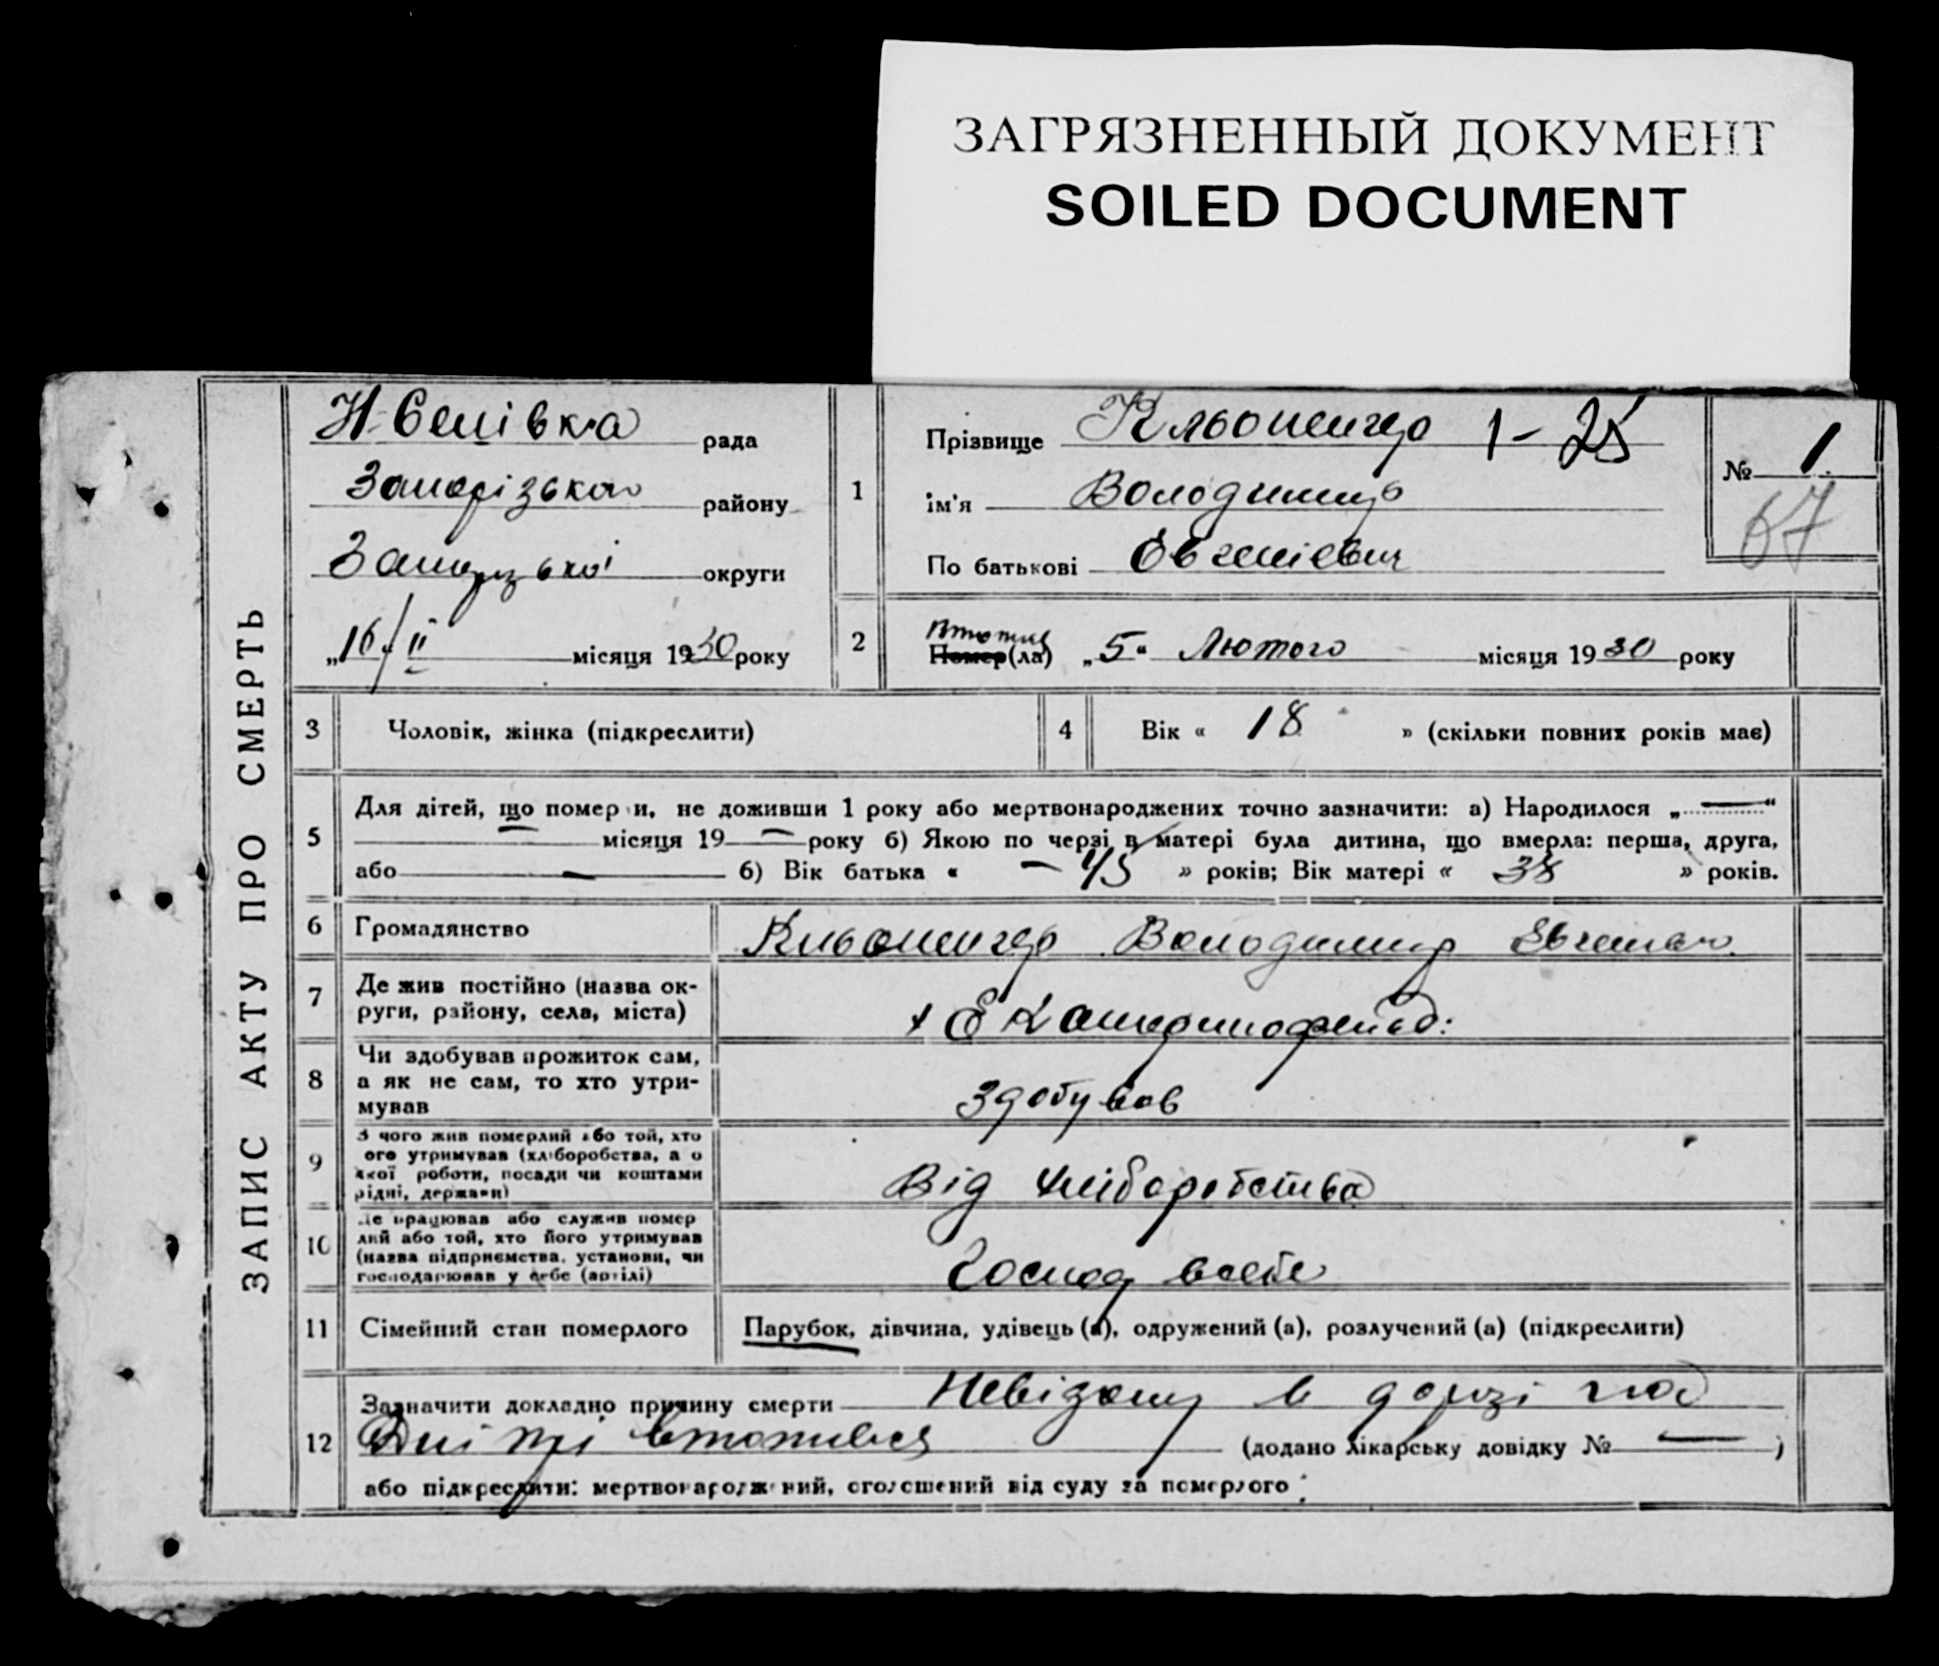 ЗАГРЯЗНЕННЫЙ ДОКУМЕНТ
SOILED DOCUMENT
ЗАПИС АКТУ ПРО СМЕРТЬ
рада
району
округи
„16/II місяця 1930 року
1
Прізвище 1-25
ім'я Володимир
По батькові Євгенієвич
№ 1
67
2
Втопив
Помер(ла) „5“ Лютого місяця 1930 року
3 Чоловік, жінка (підкреслити)
4 Вік « 18 » (скільки повних років має)
5
Для дітей, що померли, не доживши 1 року або мертвонароджених точно зазначити: а) Народилося „—“
— місяця 19— року б) Якою по черзі в матері була дитина, що вмерла: перша, друга,
або — б) Вік батька « — 45 » років; Вік матері « 38 » років.
6 Громадянство Володимир
7 Де жив постійно (назва ок-
руги, району, села, міста)
8 Чи здобував прожиток сам,
а як не сам, то хто утри-
мував
Здобував
9 З чого жив померлий або той, хто
його утримував (хліборобства, а о
якої роботи, посади чи коштами
рідні, держави)
Від хліборобства
10 Де працював або служив помер
лий або той, хто його утримував
(назва підприємства, установи, чи
господарював у себе (артілі)
Господ всебе
11 Сімейний стан померлого Парубок, дівчина, удівець (а), одружений (а), розлучений (а) (підкреслити)
12 Зазначити докладно причину смерти в дорзі на
Дніпрі втопився (додано лікарську довідку № — )
або підкреслити: мертвонароджений, оголошений від суду за померлого